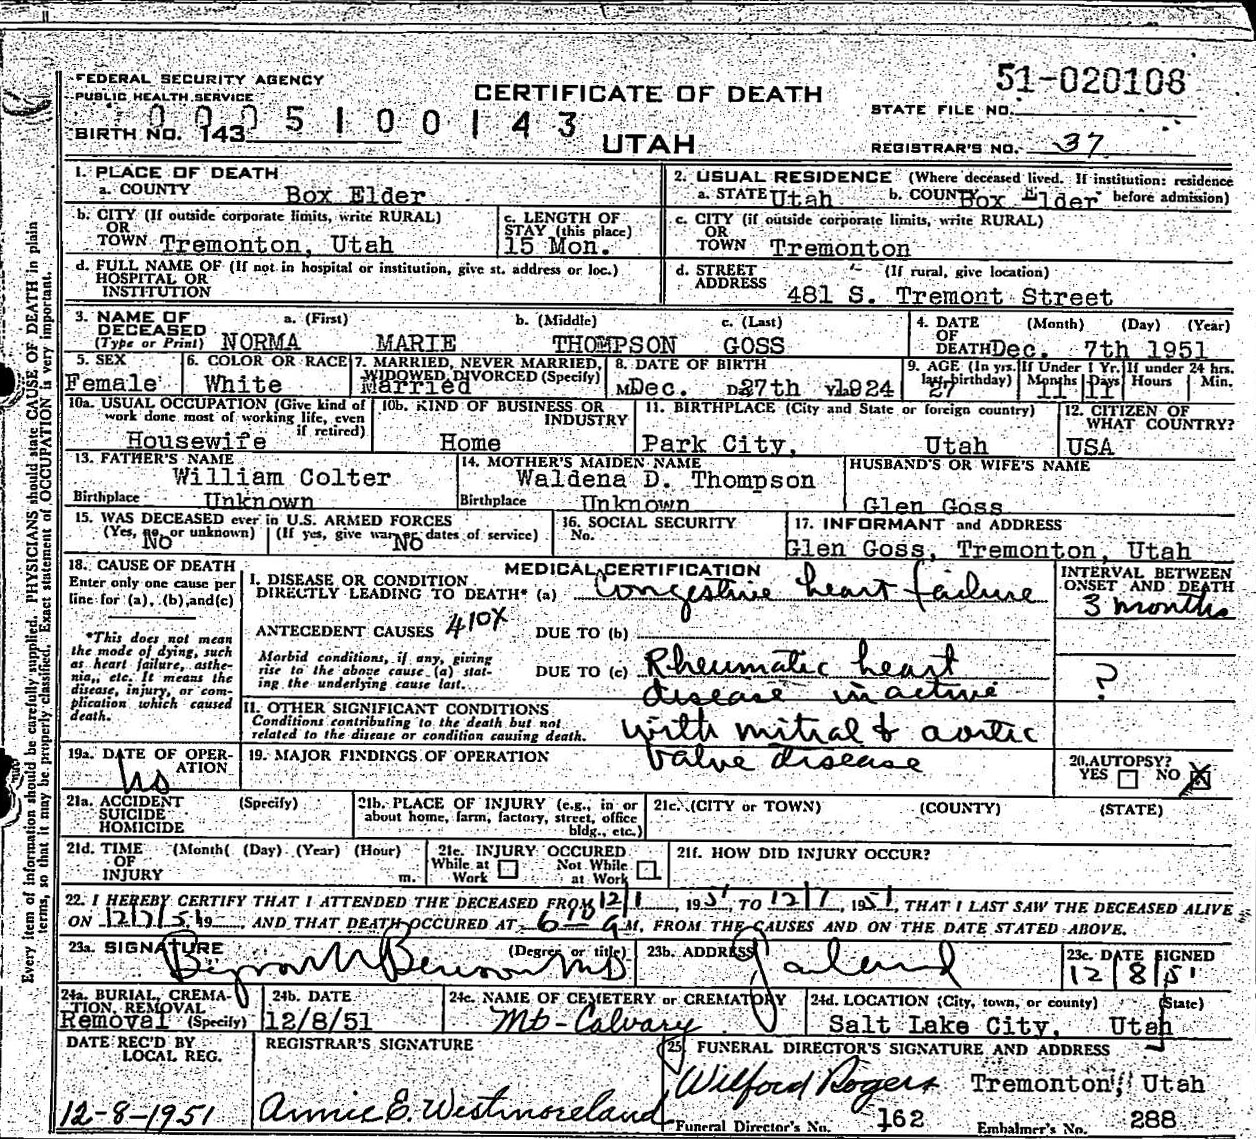 FEDERAL SECURITY AGENCY
PUBLIC HEALTH SERVICE
0005100143
BIRTH NO. 143
CERTIFICATE OF DEATH
UTAH
51-020108
STATE FILE NO.
REGISTRAR'S NO. 37
1. PLACE OF DEATH
a. COUNTY Box Elder
2. USUAL RESIDENCE (Where deceased lived. If institution: residence before admission)
a. STATE Utah b. COUNTY Box Elder
b. CITY (If outside corporate limits, write RURAL)
OR
TOWN Tremonton, Utah
c. LENGTH OF
STAY (this place)
15 Mon.
c. CITY (if outside corporate limits, write RURAL)
OR
TOWN Tremonton
d. FULL NAME OF (If not in hospital or institution, give st. address or loc.)
HOSPITAL OR
INSTITUTION
d. STREET (If rural, give location)
ADDRESS
481 S. Tremont Street
3. NAME OF a. (First) b. (Middle) c. (Last)
DECEASED
(Type or Print) NORMA MARIE THOMPSON GOSS
4. DATE (Month) (Day) (Year)
OF
DEATH Dec. 7th 1951
5. SEX
Female
6. COLOR OR RACE
White
7. MARRIED, NEVER MARRIED,
WIDOWED, DIVORCED (Specify)
Married
8. DATE OF BIRTH
M Dec. D 27th Y 1924
9. AGE (In yrs. last birthday) 27
If Under 1 Yr. Months 11 Days 11
If under 24 hrs. Hours Min.
10a. USUAL OCCUPATION (Give kind of
work done most of working life, even
if retired)
Housewife
10b. KIND OF BUSINESS OR
INDUSTRY
Home
11. BIRTHPLACE (City and State or foreign country)
Park City, Utah
12. CITIZEN OF
WHAT COUNTRY?
USA
13. FATHER'S NAME
William Colter
Birthplace Unknown
14. MOTHER'S MAIDEN NAME
Waldena D. Thompson
Birthplace Unknown
HUSBAND'S OR WIFE'S NAME
Glen Goss
15. WAS DECEASED ever in U.S. ARMED FORCES
(Yes, no, or unknown) (If yes, give war or dates of service)
No No
16. SOCIAL SECURITY
No.
17. INFORMANT and ADDRESS
Glen Goss, Tremonton, Utah
18. CAUSE OF DEATH
Enter only one cause per
line for (a), (b), and (c)
*This does not mean
the mode of dying, such
as heart failure, asthe-
nia, etc. It means the
disease, injury, or com-
plication which caused
death.
MEDICAL CERTIFICATION
I. DISEASE OR CONDITION
DIRECTLY LEADING TO DEATH* (a) Congestive heart failure
ANTECEDENT CAUSES 410X DUE TO (b)
Morbid conditions, if any, giving
rise to the above cause (a) stat-
ing the underlying cause last.
DUE TO (c) Rheumatic heart
disease inactive
with mitral & aortic
valve disease
II. OTHER SIGNIFICANT CONDITIONS
Conditions contributing to the death but not
related to the disease or condition causing death.
INTERVAL BETWEEN
ONSET AND DEATH
3 months
?
19a. DATE OF OPER-
ATION
no
19. MAJOR FINDINGS OF OPERATION
20. AUTOPSY?
YES NO X
21a. ACCIDENT (Specify)
SUICIDE
HOMICIDE
21b. PLACE OF INJURY (e.g., in or
about home, farm, factory, street, office
bldg., etc.)
21c. (CITY or TOWN) (COUNTY) (STATE)
21d. TIME (Month) (Day) (Year) (Hour)
OF
INJURY m.
21e. INJURY OCCURED
While at Work Not While at Work
21f. HOW DID INJURY OCCUR?
22. I HEREBY CERTIFY THAT I ATTENDED THE DECEASED FROM 12/1, 1951 TO 12/7, 1951, THAT I LAST SAW THE DECEASED ALIVE
ON 12/7/51 19, AND THAT DEATH OCCURED AT 6 10 a M, FROM THE CAUSES AND ON THE DATE STATED ABOVE.
23a. SIGNATURE (Degree or title)
Benson M.D
23b. ADDRESS
Garland
23c. DATE SIGNED
12/8/51
24a. BURIAL, CREMA-
TION, REMOVAL
Removal (Specify)
24b. DATE
12/8/51
24c. NAME OF CEMETERY or CREMATORY
Mt-Calvary
24d. LOCATION (City, town, or county) (State)
Salt Lake City, Utah
DATE REC'D BY
LOCAL REG.
12-8-1951
REGISTRAR'S SIGNATURE
Annie E. Westmoreland
25. FUNERAL DIRECTOR'S SIGNATURE AND ADDRESS
Wilford Rogers Tremonton, Utah
Funeral Director's No. 162 Embalmer's No. 288
Every item of information should be carefully supplied. PHYSICIANS should state CAUSE OF DEATH in plain
terms, so that it may be properly classified. Exact statement of OCCUPATION is very important.